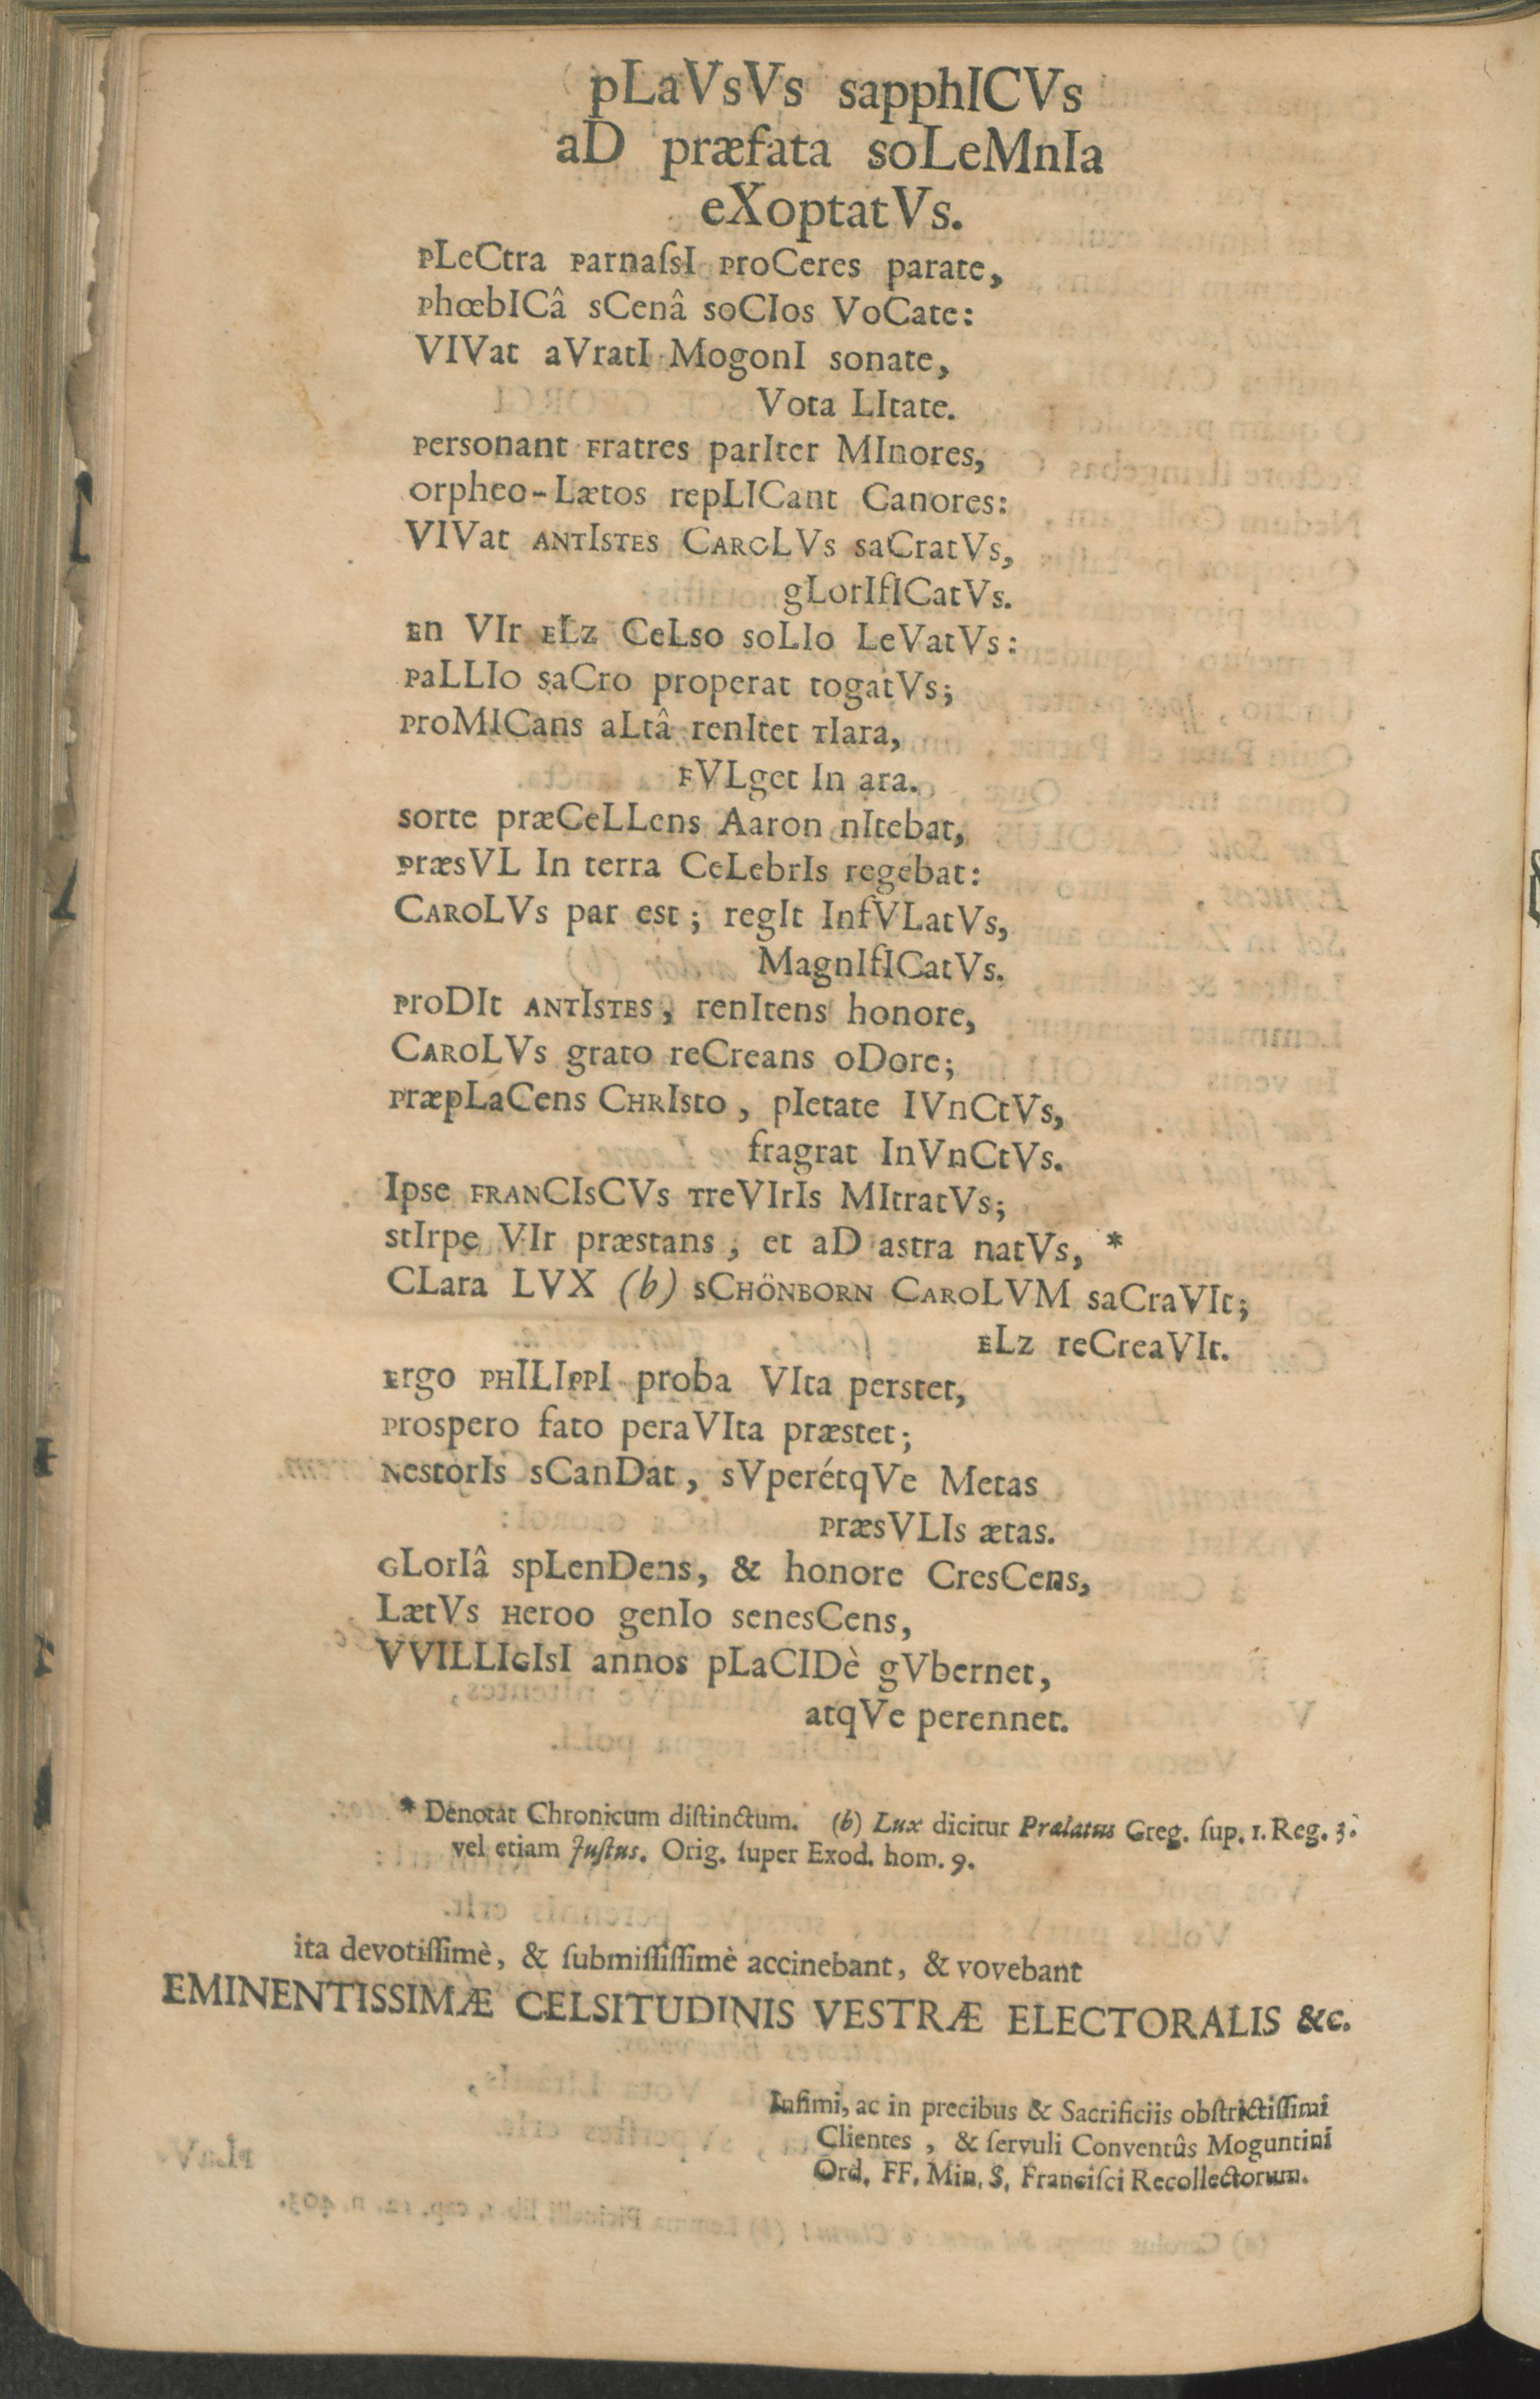 pLaVsVs sapphICVs
aD præfata soLeMnIa
eXoptatVs.
PLeCtra ParnaſsI ProCeres parate,
PhœbICâ sCenâ soCIos VoCate:
VIVat aVratI MogonI sonate,
Vota LItate.
Personant Fratres parIter MInores,
orpheo-Lætos repLICant Canores:
VIVat ANTIsTES CAROLVs saCratVs,
gLorIfICatVs.
En VIr ELz CeLso soLIo LeVatVs:
PaLLIo saCro properat togatVs;
ProMICans aLtâ renItet TIara,
FVLget In ara.
sorte præCeLLens Aaron nItebat,
PræsVL In terra CeLebrIs regebat:
CAROLVs par est; regIt InfVLatVs,
MagnIfICatVs.
ProDIt ANTIsTES, renItens honore,
CAROLVs grato reCreans oDore;
PræpLaCens CHRIsto, pIetate IVnCtVs,
fragrat InVnCtVs.
Ipse FRANCIsCVs TreVIrIs MItratVs;
stIrpe VIr præstans, et aD astra natVs, *
CLara LVX (b) sCHÖNBORN CAROLVM saCraVIt;
ELz reCreaVIt.
Ergo PHILIPPI proba VIta perstet,
Prospero fato peraVIta præstet;
NestorIs sCanDat, sVperétqVe Metas
PræsVLIs ætas.
GLorIâ spLenDens, & honore CresCens,
LætVs Heroo genIo senesCens,
VVILLIGIsI annos pLaCIDè gVbernet,
atqVe perennet.
* Denotat Chronicum diſtinctum. (b) Lux dicitur Prælatus Greg. ſup. 1. Reg. 3.
vel etiam Juſtus. Orig. ſuper Exod. hom. 9.
ita devotiſſimè, & ſubmiſſiſſimè accinebant, & vovebant
EMINENTISSIMÆ CELSITUDINIS VESTRÆ ELECTORALIS &c.
Infimi, ac in precibus & Sacrificiis obſtrictiſſimi
Clientes, & ſervuli Conventûs Moguntini
Ord. FF. Min. S. Franciſci Recollectorum.